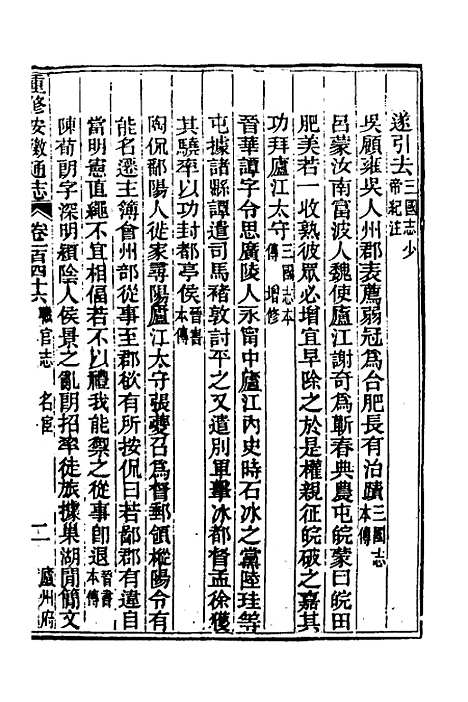 遂引去三國志少帝紀注
吳顧雍吳人州郡表薦弱冠爲合肥長有治蹟三國志本傳
呂蒙汝南富波人魏使廬江謝奇爲蘄春典農屯皖蒙曰皖田
肥美若一收熟彼眾必增宜早除之於是權親征皖破之嘉其
功拜廬江太守三國志本傳增修
晉華譚字令思廣陵人永甯中廬江內史時石冰之黨陸珪等
屯據諸縣譚遣司馬褚敦討平之又遣別軍擊冰都督孟徐獲
其驍率以功封都亭侯晉書本傳
陶侃鄱陽人徙家尋陽廬江太守張夔召爲督郵領樅陽令有
能名遷主簿會州部從事至郡欲有所按侃曰若鄙郡有違自
當明憲直繩不宜相偪若不以禮我能禦之從事卽退晉書本傳
陳荀朗字深明潁陰人侯景之亂朗招率徒旅據巢湖聞簡文
重修安徽通志 卷一百四十六 職官志 名宦 二 廬州府